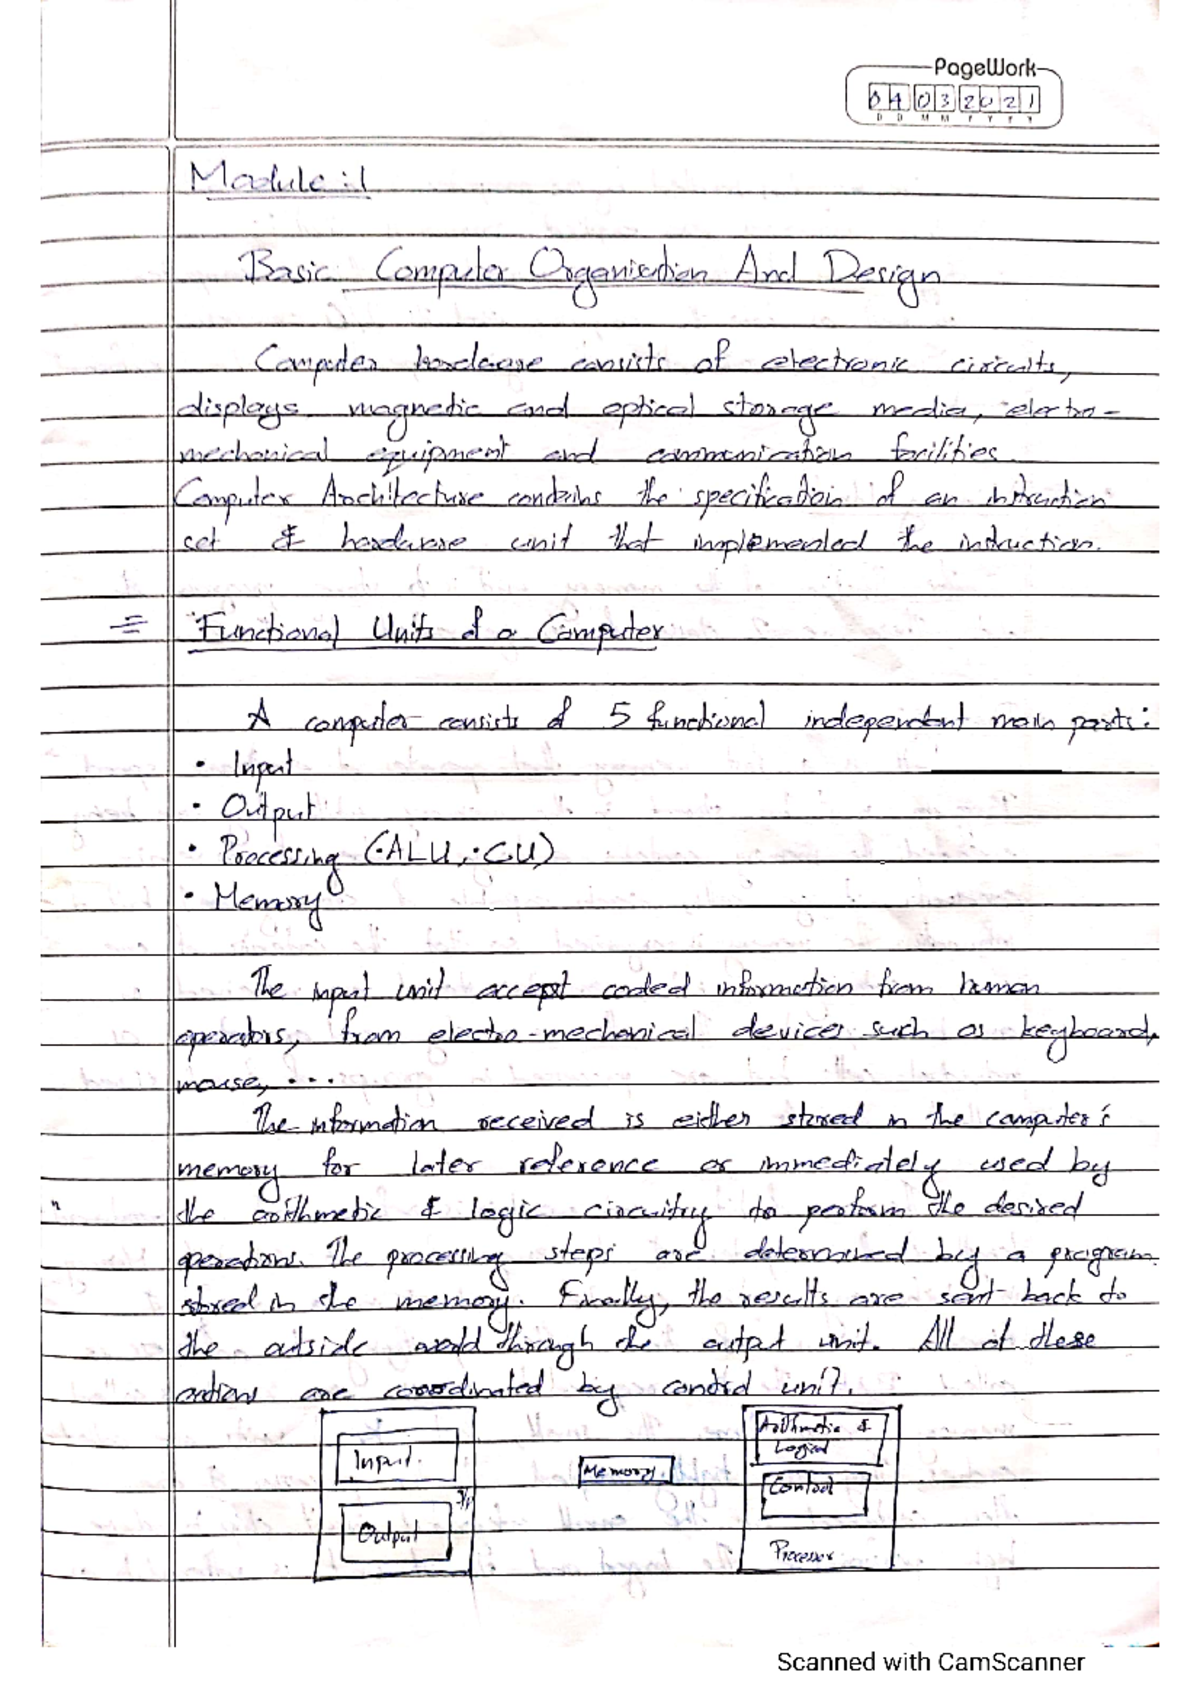 PageWork
04 03 2021
D D M M Y Y Y Y
Module :1
Basic Computer Organisation And Design
Computer hardware consists of electronic circuits,
displays magnetic and optical storage media, electro-
mechanical equipment and communication facilities.
Computer Architecture contains the specification of an instruction
set & hardware unit that implemented the instruction.
Functional Units of a Computer
A computer consists of 5 functional independent main parts:
• Input
• Output
• Processing (·ALU, ·CU)
• Memory
The input unit accept coded information from human
operators, from electro-mechanical devices such as keyboard,
mouse, ...
The information received is either stored in the computer's
memory for later reference or immediately used by
the arithmetic & logic circuitry to perform the desired
operations. The processing steps are determined by a program
stored in the memory. Finally, the results are sent back to
the outside world through the output unit. All of these
actions are cooordinated by control unit.
Arithmetic &
Logical
Input.
Memory.
Control
Output
Processor
Scanned with CamScanner